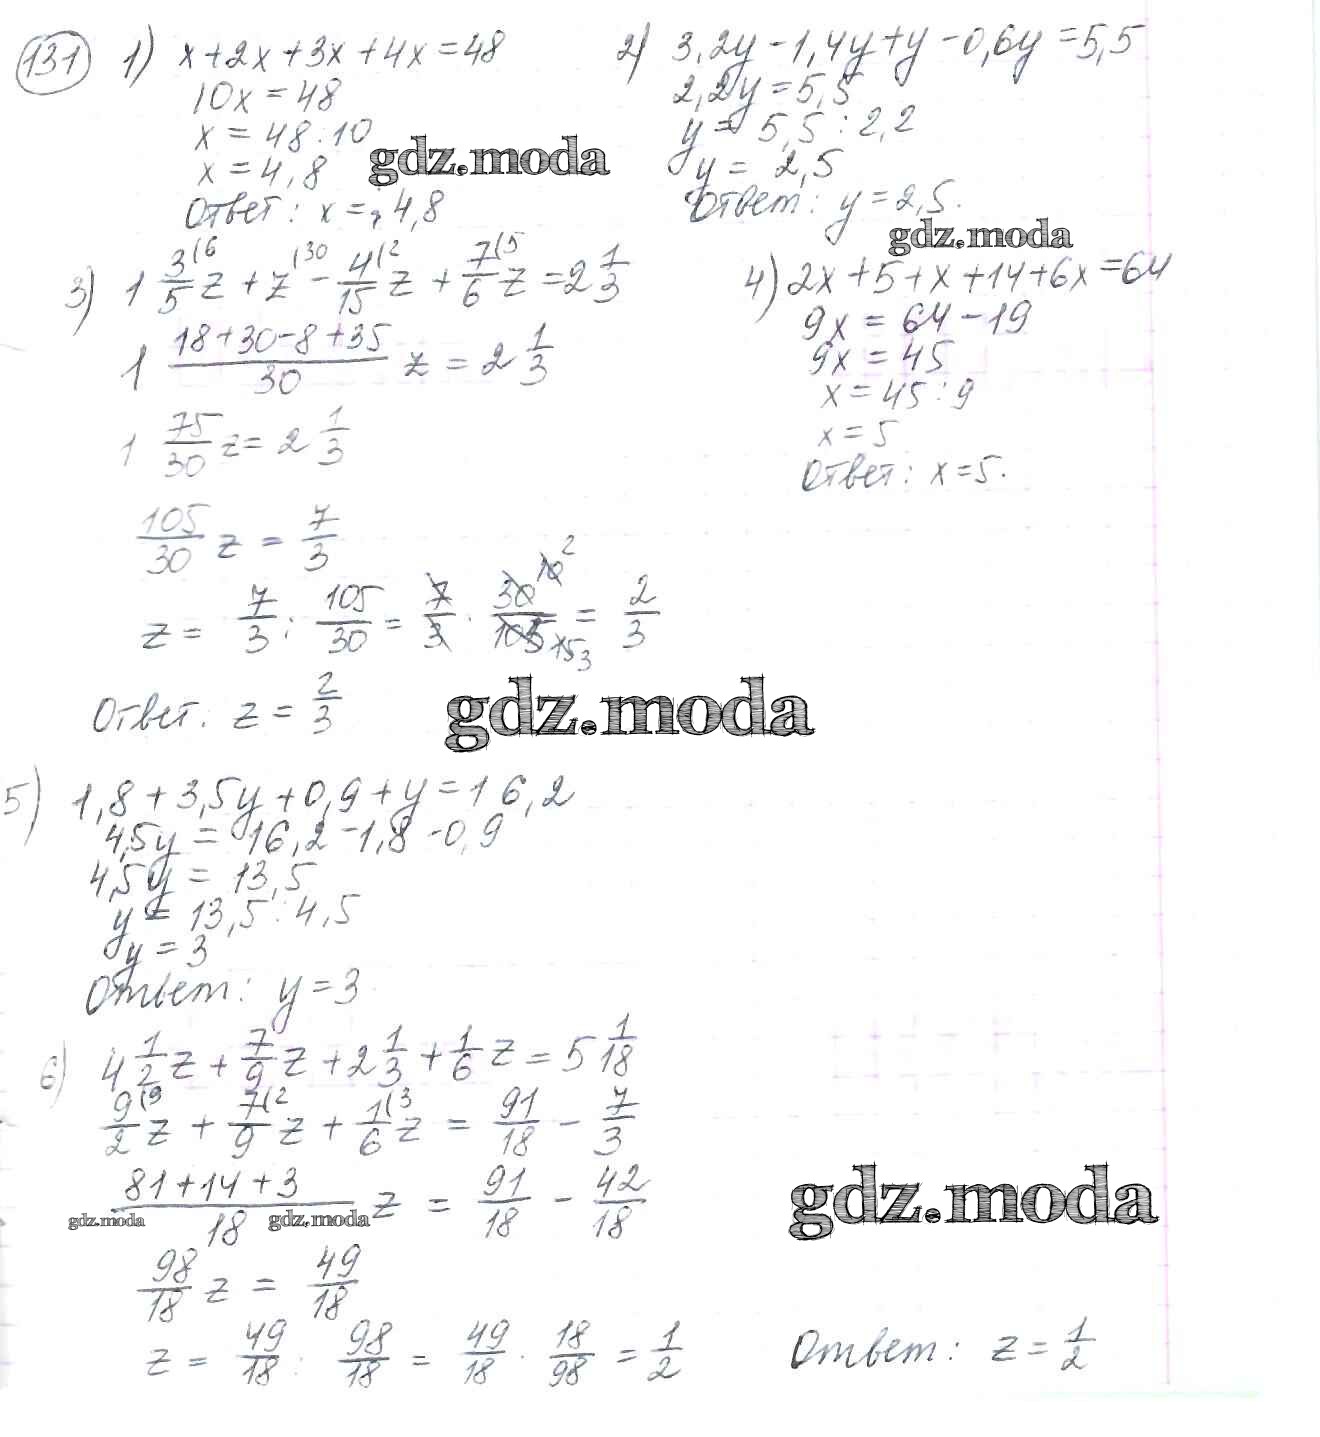 131 1) x+2x+3x+4x=48
10x=48
x=48:10
x=4,8
Ответ: x=4,8
2) 3,2y-1,4y+y-0,6y=5,5
2,2y=5,5
y=5,5:2,2
y=2,5
Ответ: y=2,5.
gdz.moda
gdz.moda
3) 1 3(6/5 z + z(30 - 4(2/15 z + 7(5/6 z = 2 1/3
1 (18+30-8+35)/30 z = 2 1/3
1 75/30 z = 2 1/3
105/30 z = 7/3
z = 7/3 : 105/30 = 7/3 · 30/105 = 2/3
Ответ. z = 2/3
4) 2x+5+x+14+6x=64
9x=64-19
9x=45
x=45:9
x=5
Ответ: x=5.
gdz.moda
5) 1,8+3,5y+0,9+y=16,2
4,5y=16,2-1,8-0,9
4,5y=13,5
y=13,5:4,5
y=3
Ответ: y=3
6) 4 1/2 z + 7/9 z + 2 1/3 + 1/6 z = 5 1/18
9(9/2 z + 7(2/9 z + 1(3/6 z = 91/18 - 7/3
(81+14+3)/18 z = 91/18 - 42/18
gdz.moda gdz.moda
gdz.moda
98/18 z = 49/18
z = 49/18 : 98/18 = 49/18 · 18/98 = 1/2
Ответ: z = 1/2